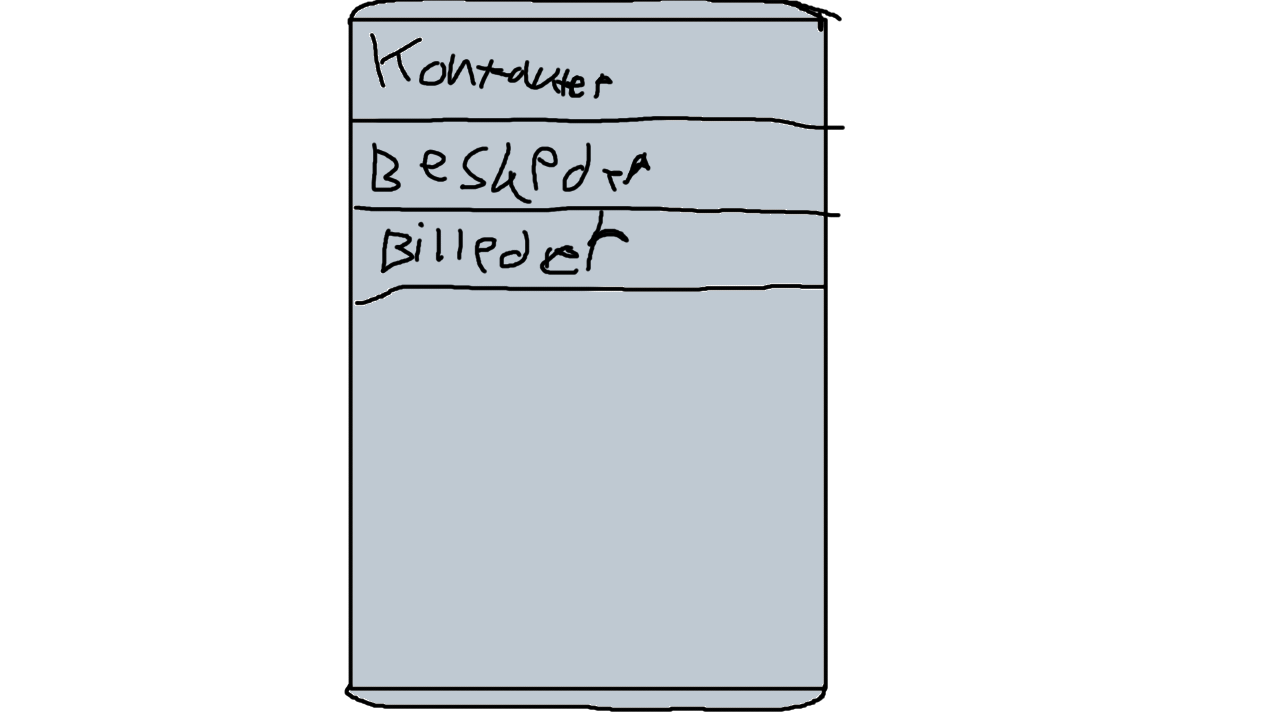 Kontakter
Beskeder
Billeder